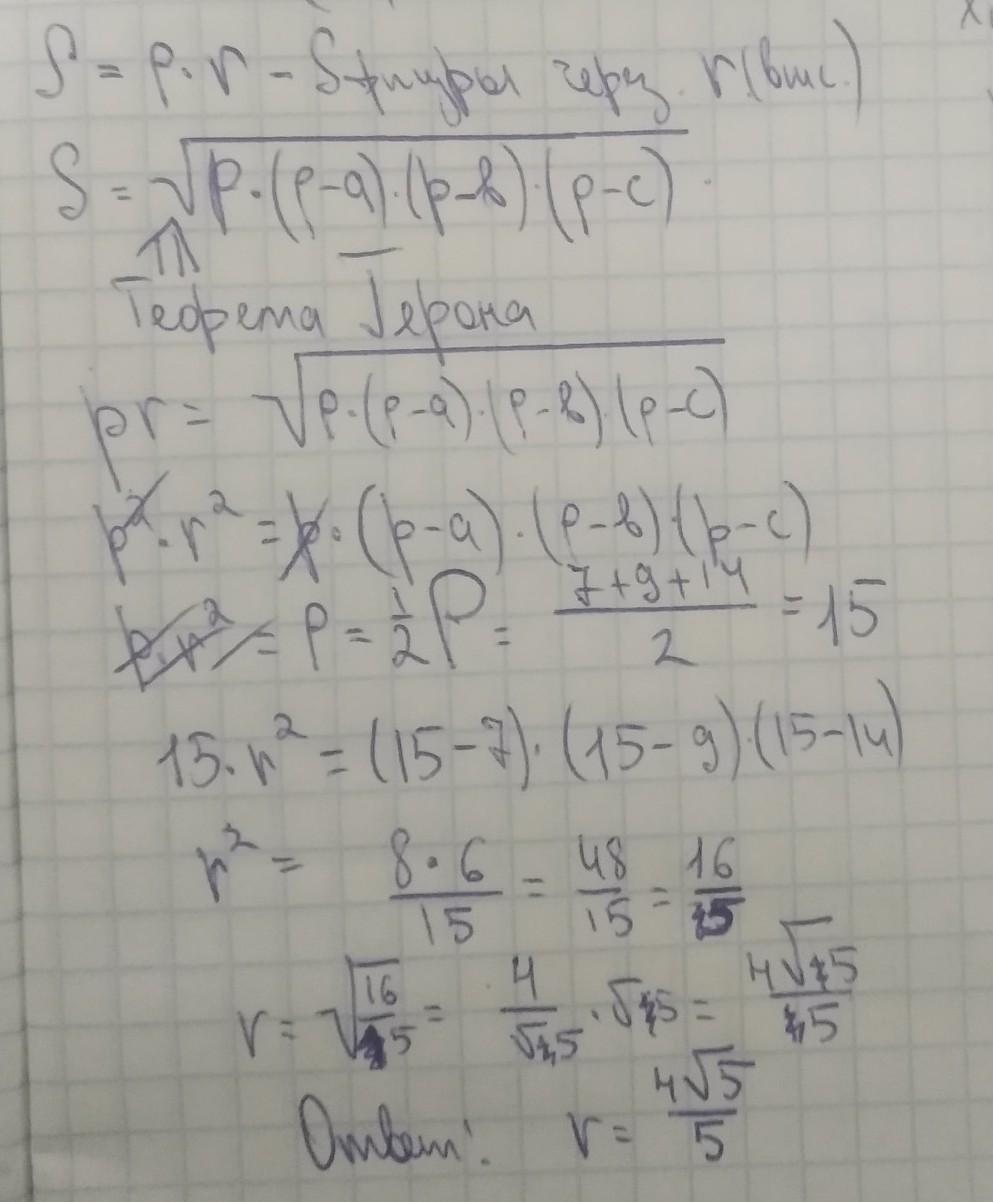 S = p·r - Sфигуры через r(впис.)
S = √p·(p-a)·(p-b)·(p-c)
Теорема Герона
pr = √p·(p-a)·(p-b)·(p-c)
p²·r² = p·(p-a)·(p-b)·(p-c)
p·r² = p = 1/2 P = 7+9+14/2 = 15
15·r² = (15-7)·(15-9)·(15-14)
r² = 8·6/15 = 48/15 = 16/5
r = √16/5 = 4/√5 · √5 = 4√5/5
Ответ: r = 4√5/5